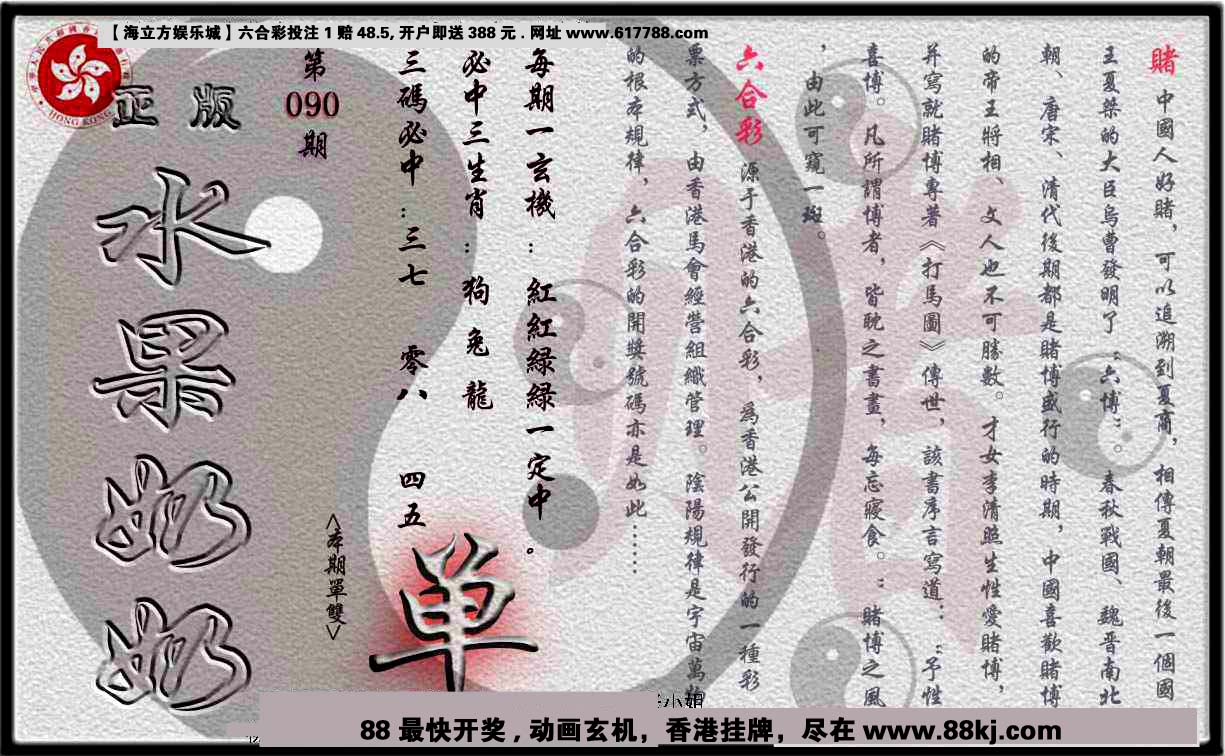 【海立方娱乐城】六合彩投注1赔48.5,开户即送388元.网址www.617788.com
賭 中國人好賭，可以追溯到夏商，相傳夏朝最後一個國
王夏桀的大臣烏曹發明了“六博”。春秋戰國、魏晋南北
朝、唐宋、清代後期都是賭博盛行的時期，中國喜歡賭博
的帝王將相、文人也不可勝數。才女李清照生性愛賭博，
并寫就賭博專著《打馬圖》傳世，該書序言寫道：“予性
喜博。凡所謂博者，皆耽之書畫，每忘寢食。”賭博之風
，由此可窺一斑。
六合彩 源于香港的六合彩，爲香港公開發行的一種彩
票方式，由香港馬會經營組織管理。陰陽規律是宇宙萬物
的根本規律，六合彩的開獎號碼亦是如此……
每期一玄機：紅紅緑緑一定中。
必中三生肖：狗兔龍
三碼必中：三七 零八 四五
<本期單雙>
单
第
090
期
正版
水果奶奶
HONG KONG
小姐
88最快开奖,动画玄机，香港挂牌，尽在www.88kj.com